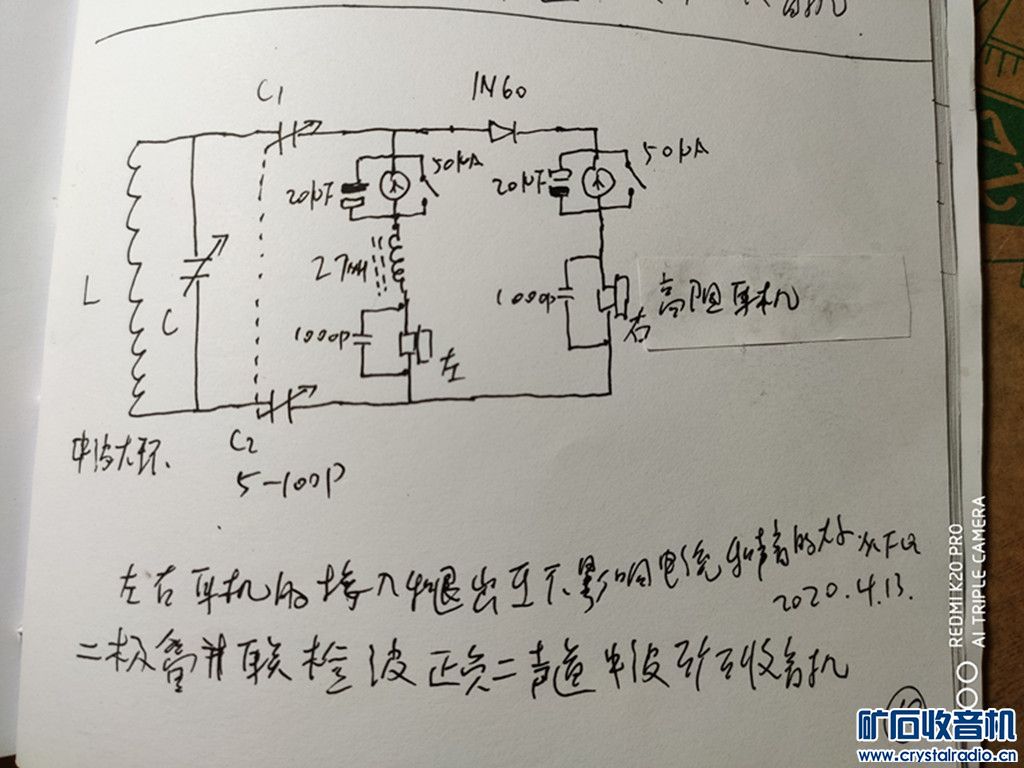 C1
1N60
50μA
20μF
50μA
20μF
27mH
L
C
1000p
左
1000p
右
高阻耳机
C2
5-100P
中波大环.
左右耳机的接入和退出互不影响电流和声音的大小
2020.4.13.
二极管并联检波正负二声道中波矿石收音机
REDMI K20 PRO
AI TRIPLE CAMERA
矿石收音机
www.crystalradio.cn